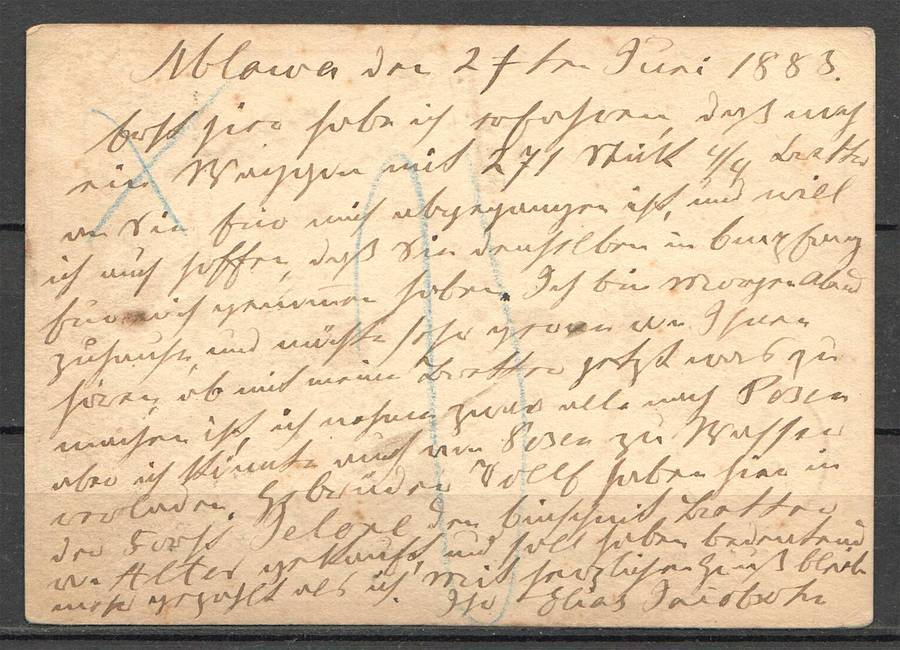 Mlawa den 27ten Juni 1883.
Erst hier habe ich erfahren, daß noch
ein Waggon mit 271 Stück 4/4 Bretter
an Sie für mich abgegangen ist, und will
ich auch hoffen, daß Sie denselben in Empfang
für mich genommen haben. Ich bin Morgen Abend
zuhause, und möchte sehr gerne von Ihnen
hören, ob mit meine Bretter jetzt was zu
machen ist, ich nehme zwar alle nach Posen
aber ich könnte auch von Posen zu Wasser
verladen. Gebrüder Wolff haben hier in
der Forst den Einschnitt Bretter
von Alter gekauft, und soll haben bedeutend
mehr gezahlt als ich, mit herzlichen Gruß bleibe
Ihr Elias Jacobsohn